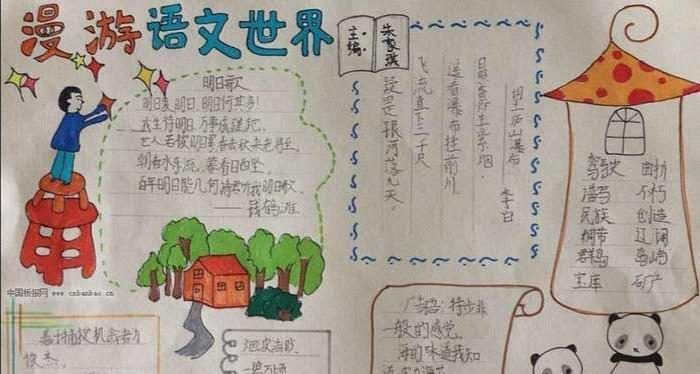 漫游语文世界
主编:
朱家琪
明日歌
明日复明日,明日何其多!
我生待明日,万事成蹉跎.
世人若被明日累春去秋来老将至.
朝看水东流,暮看日西坠.
百年明日能几何请君听我明日歌.
——钱鹤滩
望庐山瀑布
李白
日照香炉生紫烟.
遥看瀑布挂前川
飞流直下三千尺
疑是银河落九天
驾驶
谱写 不朽
民族 创造
绸带 辽阔
群岛 岛屿
宝库 矿产
中国板报网 www.cnbanbao.cn
俊杰.
广告语:特步非
一般的感觉.
海的味道我知